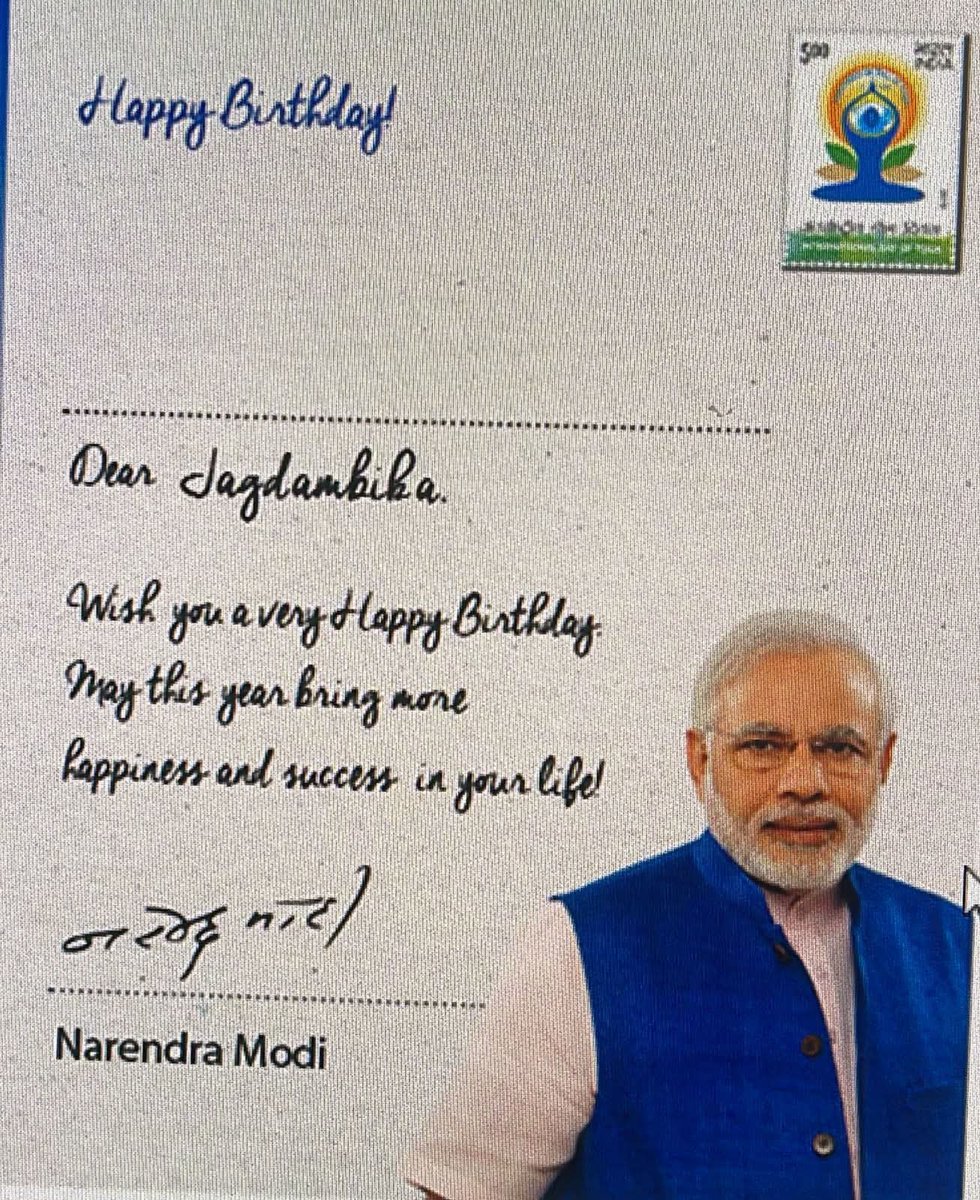 Happy Birthday!
500
INDIA
Dear Jagdambika.
Wish you a very Happy Birthday.
May this year bring more
happiness and success in your life!
नरेन्द्र मोदी
Narendra Modi